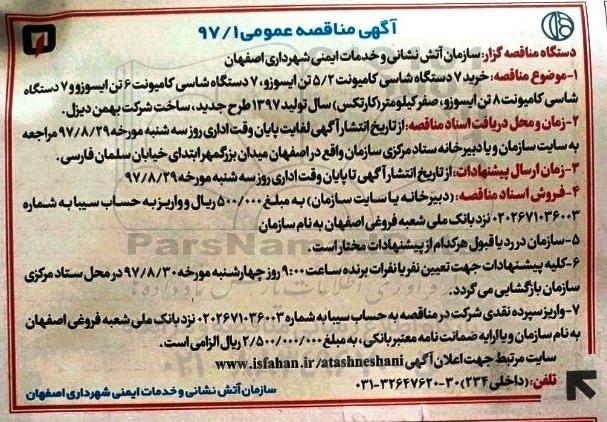 آگهی مناقصه عمومی ۹۷/۱
دستگاه مناقصه گزار: سازمان آتش نشانی و خدمات ایمنی شهرداری اصفهان
۱-موضوع مناقصه: خرید ۷ دستگاه شاسی کامیونت ۵/۲ تن ایسوزو، ۷ دستگاه شاسی کامیونت ۶ تن ایسوزو و ۷ دستگاه
شاسی کامیونت ۸ تن ایسوزو، صفر کیلومتر (کارتکس) سال تولید ۱۳۹۷ طرح جدید، ساخت شرکت بهمن دیزل.
۲-زمان و محل دریافت اسناد مناقصه: از تاریخ انتشار آگهی لغایت پایان وقت اداری روز سه شنبه مورخه ۹۷/۸/۲۹ مراجعه
به سایت سازمان و یا دبیرخانه ستاد مرکزی سازمان واقع در اصفهان میدان بزرگمهر ابتدای خیابان سلمان فارسی.
۳-زمان ارسال پیشنهادات: از تاریخ انتشار آگهی تا پایان وقت اداری روز سه شنبه مورخه ۹۷/۸/۲۹
۴-فروش اسناد مناقصه: (دبیرخانه یا سایت سازمان) به مبلغ ۵۰۰/۰۰۰ ریال و واریز به حساب سیبا به شماره
۰۲۰۲۶۷۱۰۳۶۰۰۳ نزد بانک ملی شعبه فروغی اصفهان به نام سازمان
۵-سازمان در رد یا قبول هرکدام از پیشنهادات مختار است.
۶-کلیه پیشنهادات جهت تعیین نفر یا نفرات برنده ساعت ۹:۰۰ روز چهارشنبه مورخه ۹۷/۸/۳۰ در محل ستاد مرکزی
سازمان بازگشایی می گردد.
۷-واریز سپرده نقدی شرکت در مناقصه به حساب سیبا به شماره ۰۲۰۲۶۷۱۰۳۶۰۰۳ نزد بانک ملی شعبه فروغی اصفهان
به نام سازمان و یا ارایه ضمانت نامه معتبر بانکی، به مبلغ ۲/۵۰۰/۰۰۰/۰۰۰ ریال الزامی است.
سایت مرتبط جهت اعلان آگهی www.isfahan.ir/atashneshani
تلفن: (داخلی ۲۳۴) ۳۰-۳۲۶۴۷۶۲۰-۰۳۱
سازمان آتش نشانی و خدمات ایمنی شهرداری اصفهان